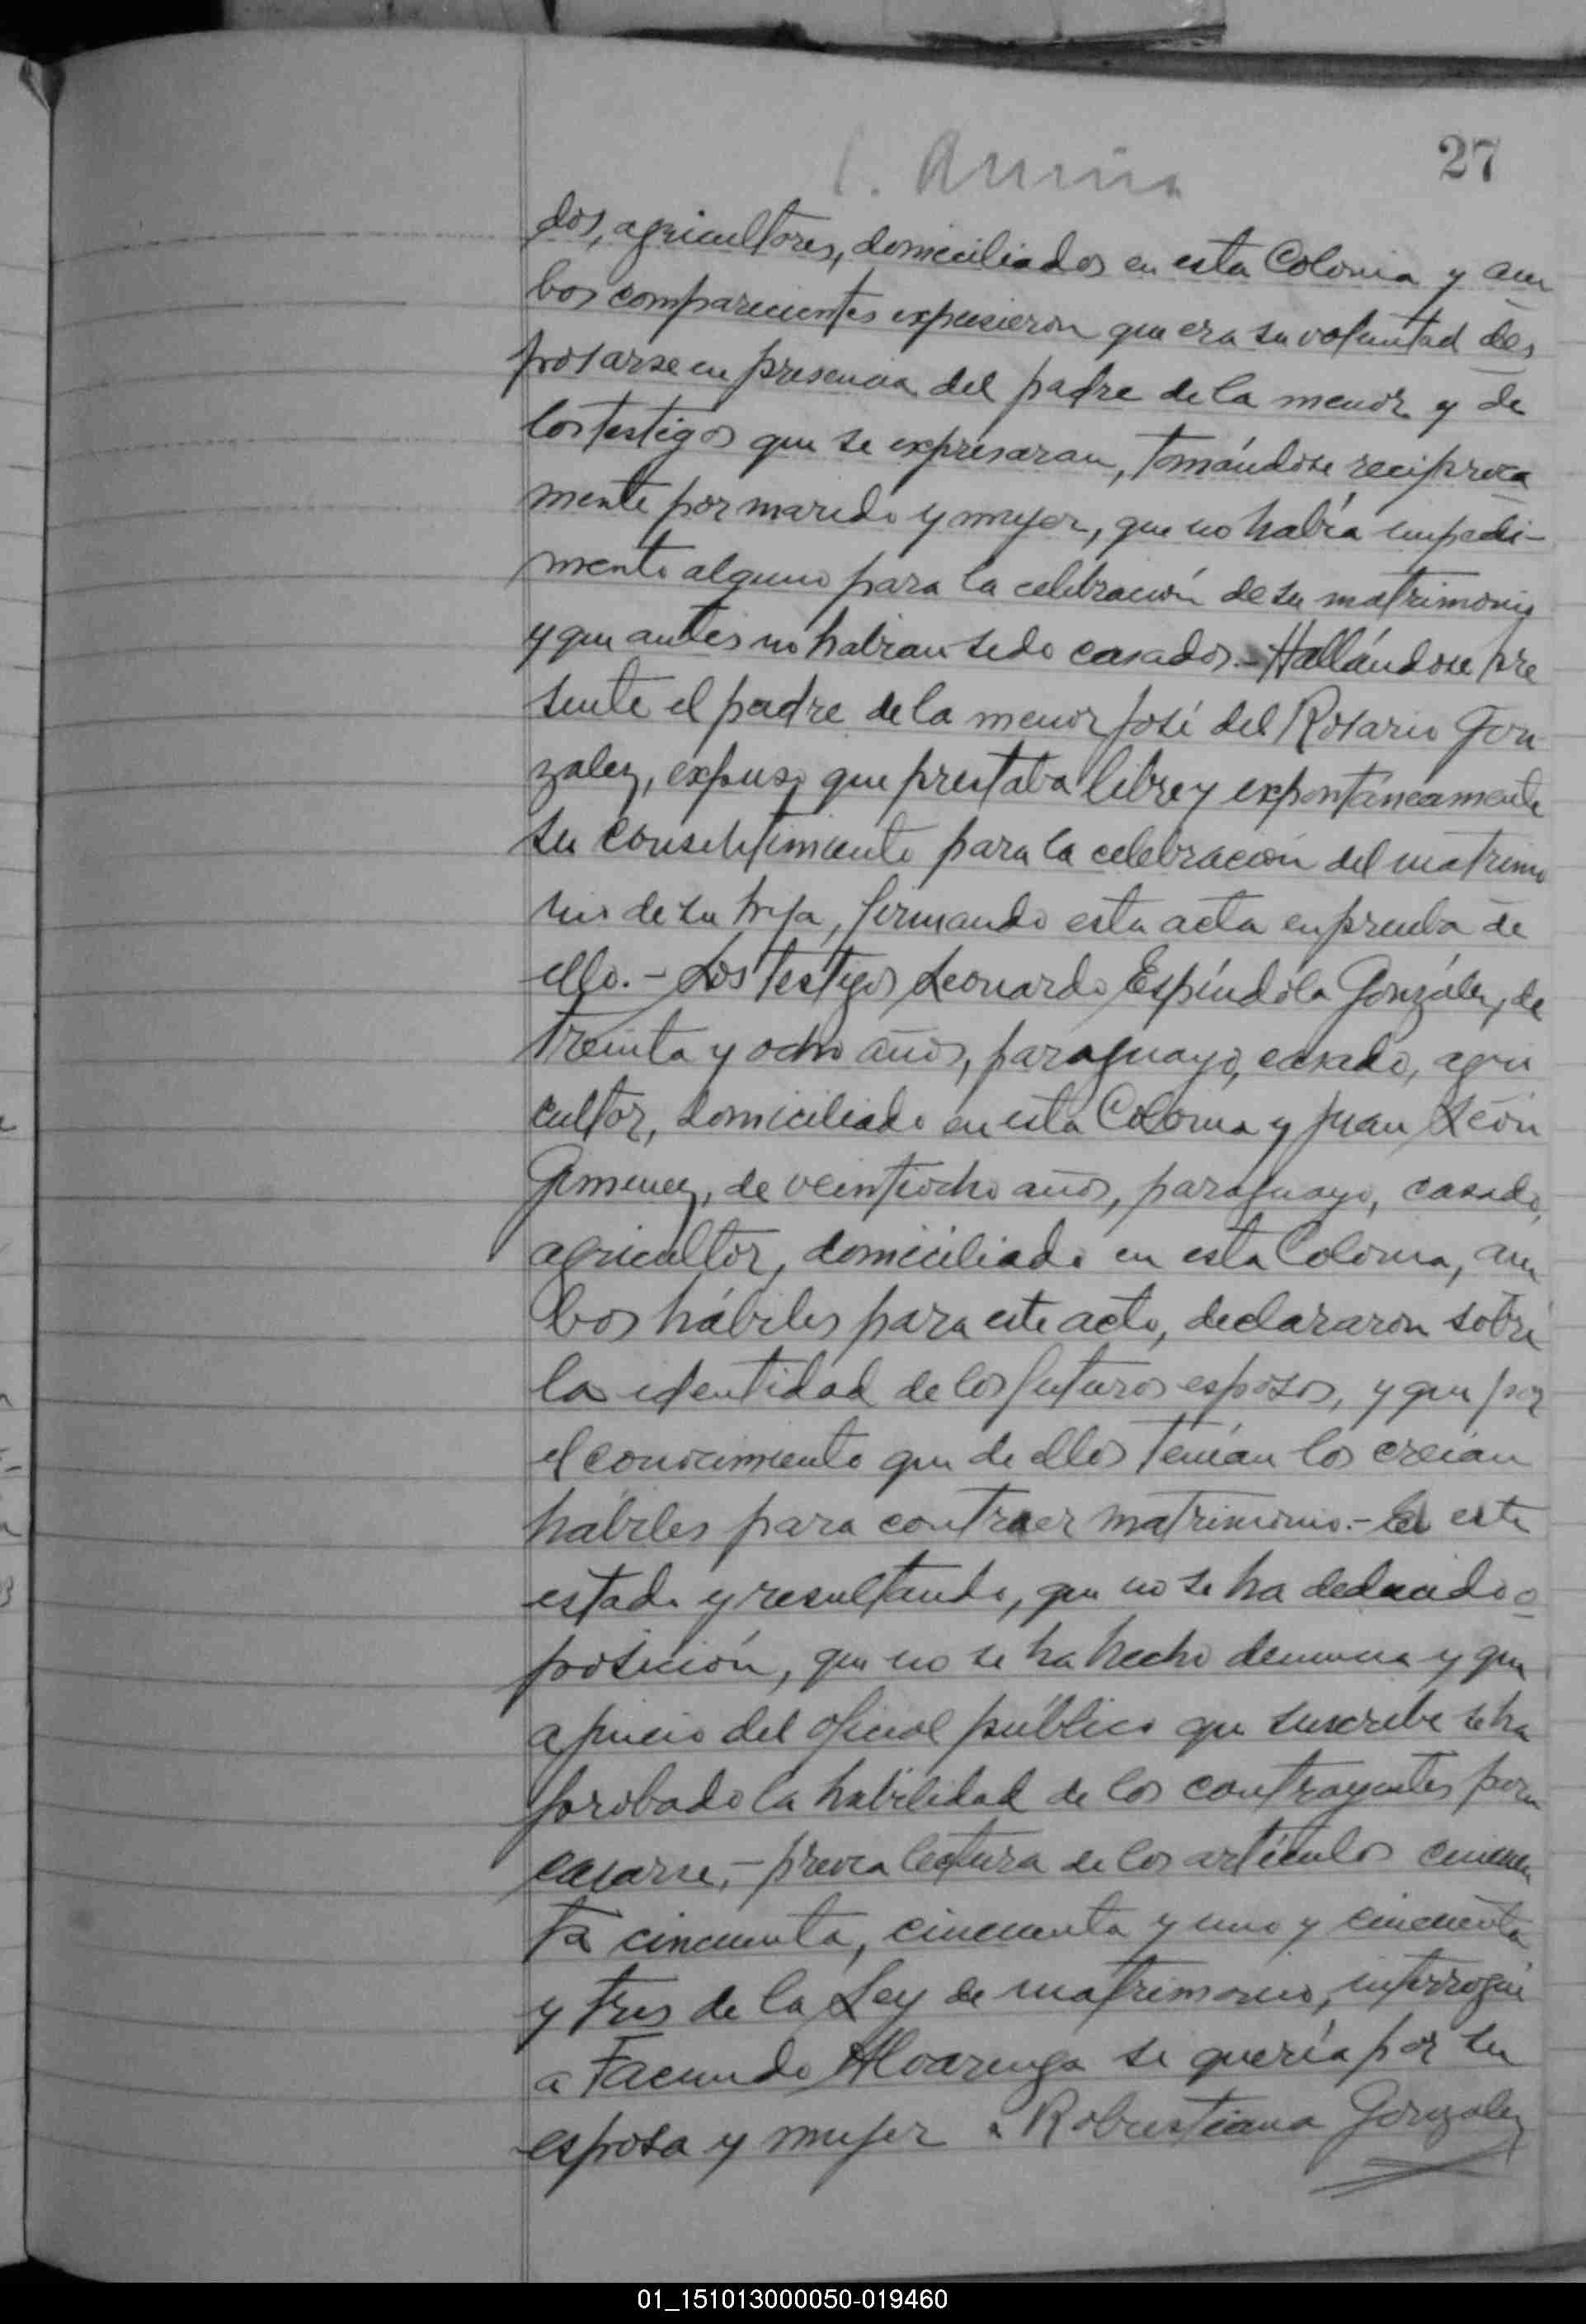 27
dos, agricultores, domiciliados en esta Colonia y am
bos comparecientes expusieron que era su voluntad des
posarse en presencia del padre de la menor y de
los testigos que se expresaran, tomándose reciproca
mente por marido y mujer, que no había impedi-
mento alguno para la celebración de su matrimonio
y que antes no habian sido casados.- Hallándose pre
sente el padre de la menor José del Rosario Gon
zalez, expuso que prestaba libre y expontáneamente
su consentimiento para la celebración del matrimo
nio de su hija, firmando esta acta en prueba de
ello.- Los testigos Leonardo Espíndola González, de
treinta y ocho años, paraguayo, casado, agri
cultor, domiciliado en esta Colonia y Juan León
Gimenez, de veintiocho años, paraguayo, casado,
agricultor, domiciliado en esta Colonia, am
bos hábiles para este acto, declararon sobre
la identidad de los futuros esposos, y que por
el conocimiento que de ellos tenían los creían
hábiles para contraer matrimonio.- En este
estado y resultando, que no se ha deducido o
posición, que no se ha hecho denuncia y que
a juicio del oficial público que suscribe se ha
probado la habilidad de los contrayentes para
casarse,- previa lectura de los artículos cincuen
ta cincuenta, cincuenta y uno y cincuenta
y tres de la Ley de matrimonio, interrogué
a Facundo Alvarenga si quería por su
esposa y mujer a Robustiana Gonzalez
01_151013000050-019460